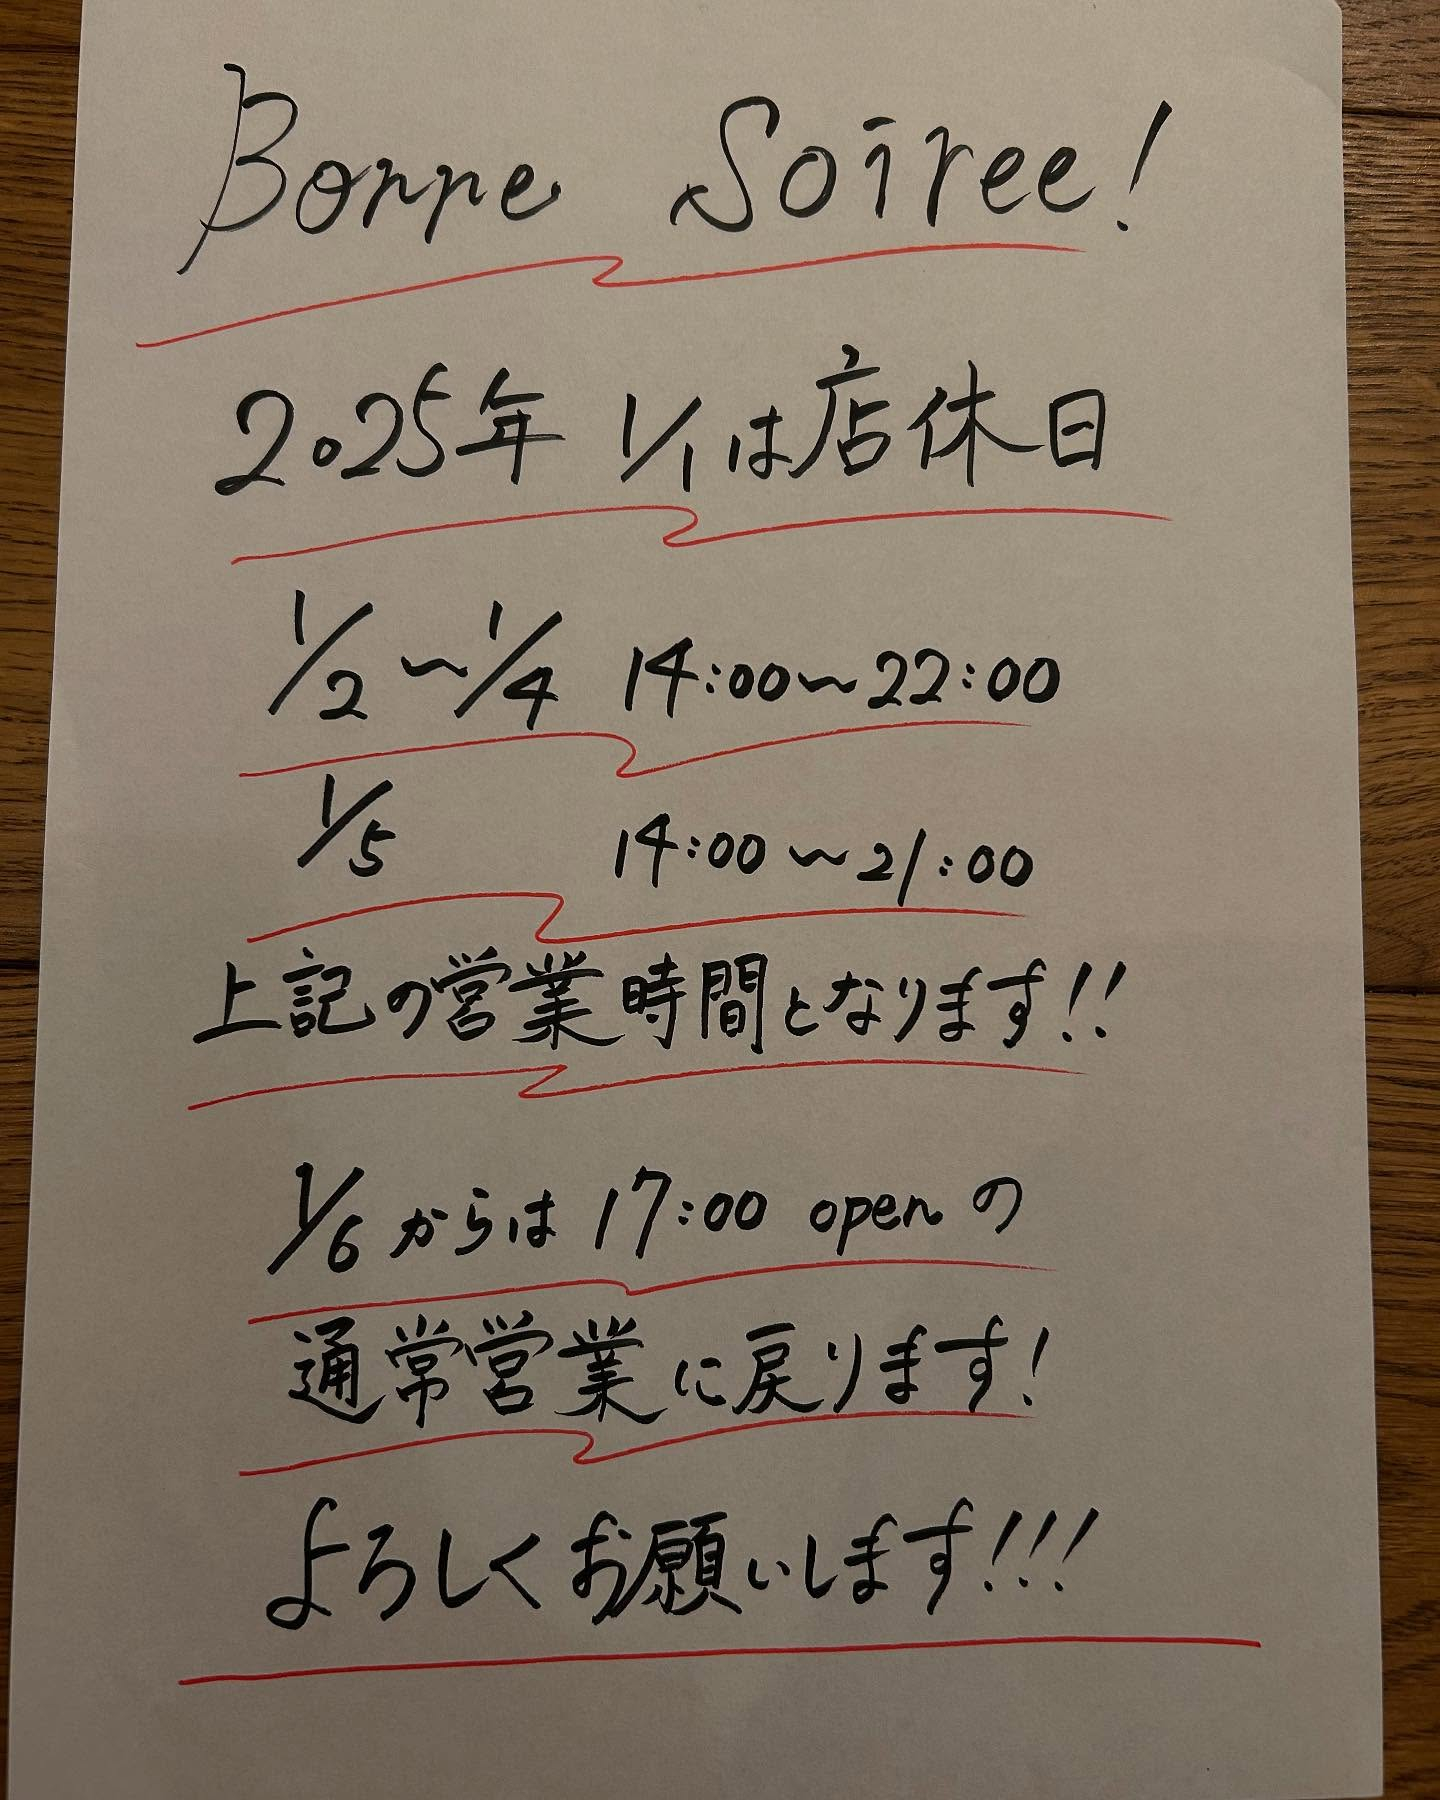 Bonne Soiree!
2025年 1/1は店休日
1/2〜1/4 14:00〜22:00
1/5 14:00〜21:00
上記の営業時間となります!!
1/6からは 17:00 openの
通常営業に戻ります!
よろしくお願いします!!!